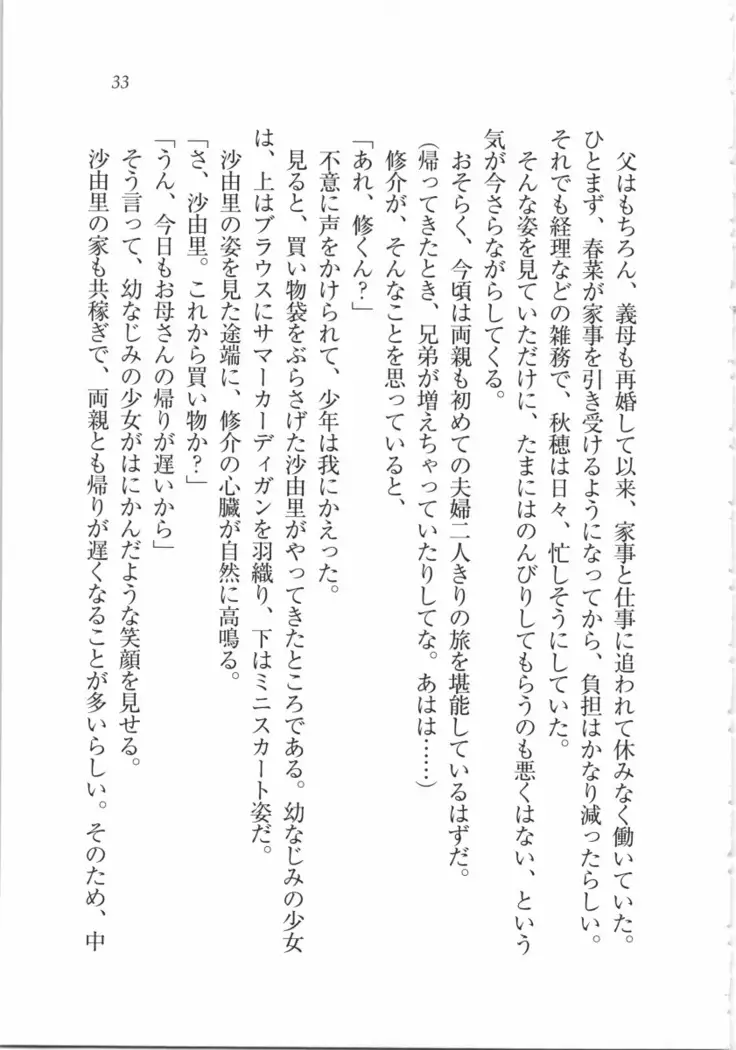 33
父はもちろん、義母も再婚して以来、家事と仕事に追われて休みなく働いていた。
ひとまず、春菜が家事を引き受けるようになってから、負担はかなり減ったらしい。
それでも経理などの雑務で、秋穂は日々、忙しそうにしていた。
そんな姿を見ていただけに、たまにはのんびりしてもらうのも悪くはない、という
気が今さらながらしてくる。
おそらく、今頃は両親も初めての夫婦二人きりの旅を堪能しているはずだ。
(帰ってきたとき、兄弟が増えちゃっていたりしてな。あはは……)
修介が、そんなことを思っていると、
「あれ、修くん？」
不意に声をかけられて、少年は我にかえった。
見ると、買い物袋をぶらさげた沙由里がやってきたところである。幼なじみの少女
は、上はブラウスにサマーカーディガンを羽織り、下はミニスカート姿だ。
沙由里の姿を見た途端に、修介の心臓が自然に高鳴る。
「さ、沙由里。これから買い物か？」
「うん、今日もお母さんの帰りが遅いから」
そう言って、幼なじみの少女がはにかんだような笑顔を見せる。
沙由里の家も共稼ぎで、両親とも帰りが遅くなることが多いらしい。そのため、中